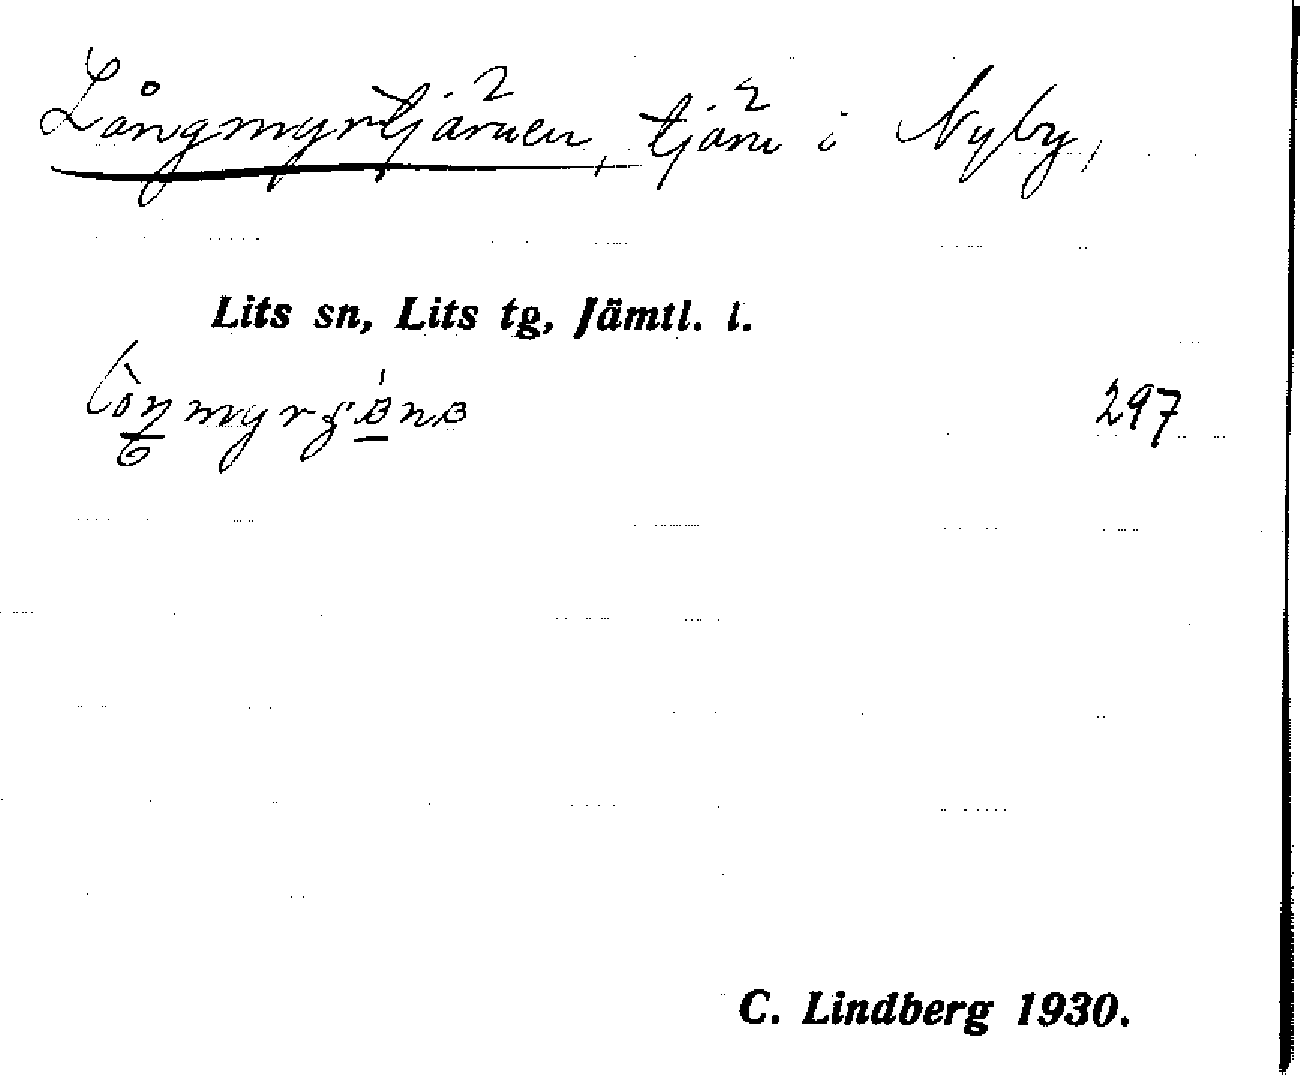 Långmyrtjärnen, tjärn i Nyby,
Lits sn, Lits tg, Jämtl. l.
297
C. Lindberg 1930.